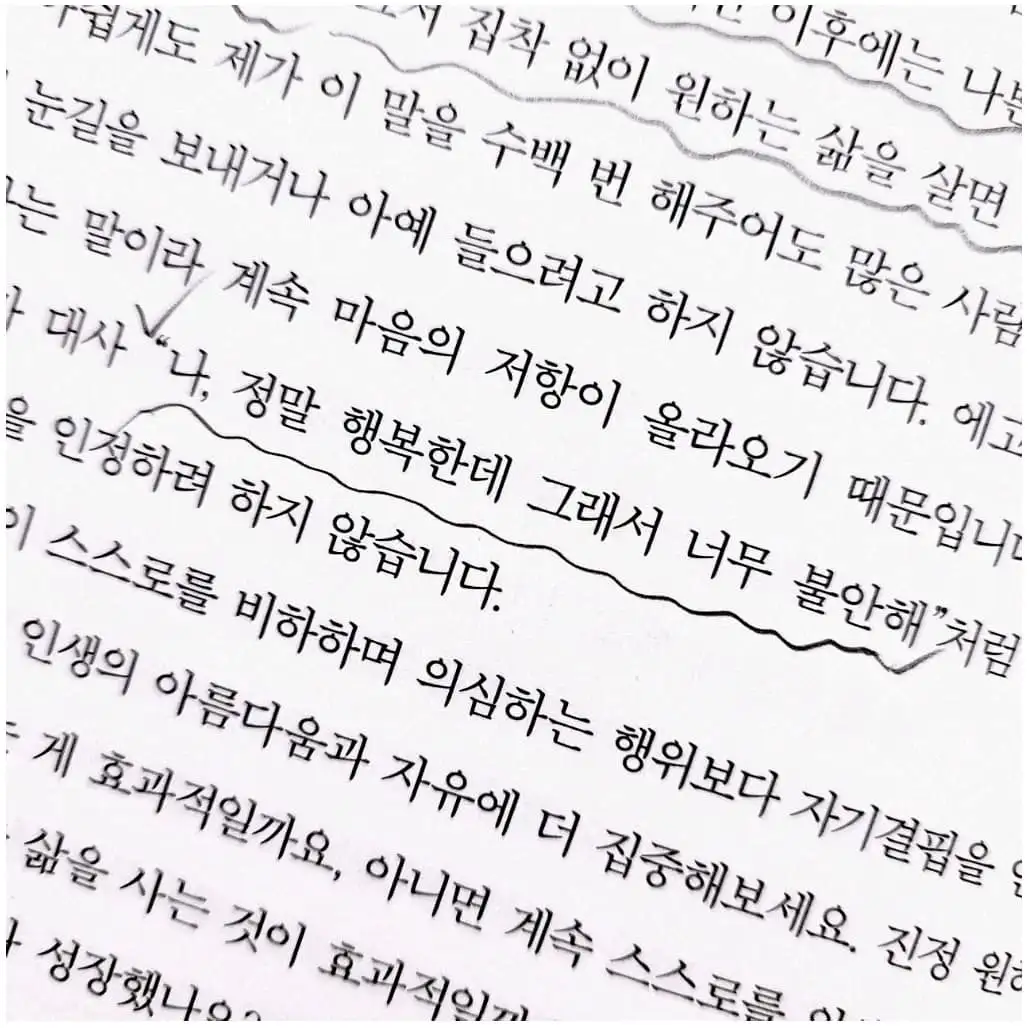 이후에는 나쁜
집착 없이 원하는 삶을 살면
쉽게도 제가 이 말을 수백 번 해주어도 많은 사람
눈길을 보내거나 아예 들으려고 하지 않습니다. 에고
는 말이라 계속 마음의 저항이 올라오기 때문입니다
대사 “나, 정말 행복한데 그래서 너무 불안해”처럼
을 인정하려 하지 않습니다.
이 스스로를 비하하며 의심하는 행위보다 자기결핍을
인생의 아름다움과 자유에 더 집중해보세요. 진정 원하
게 효과적일까요, 아니면 계속 스스로를
삶을 사는 것이 효과적일까
성장했나요?